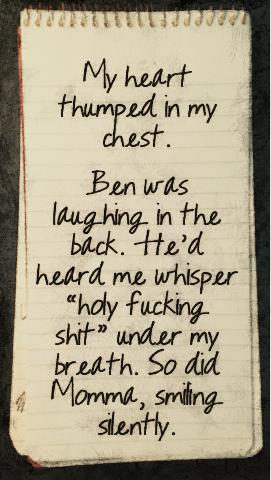 My heart
thumped in my
chest.
Ben was
laughing in the
back. He'd
heard me whisper
"holy fucking
shit" under my
breath. So did
Momma, smiling
silently.